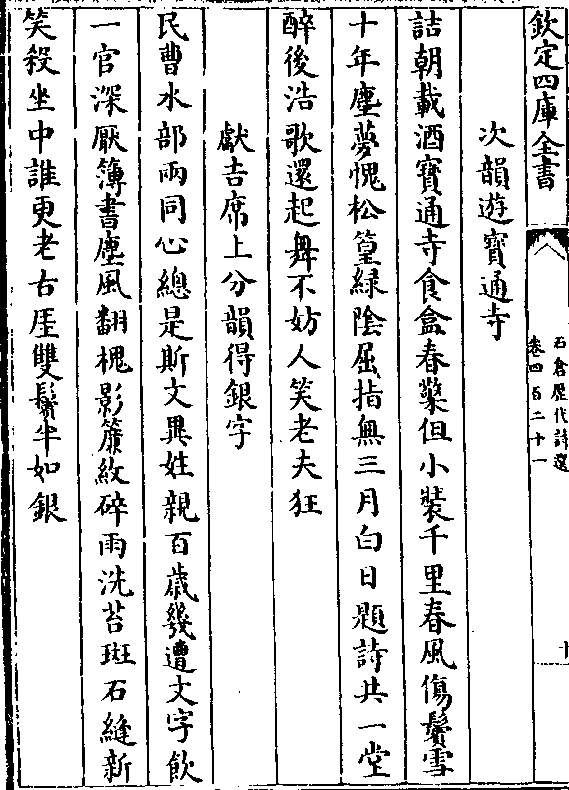 欽定四庫全書
石倉歷代詩選
卷四百二十一
十
次韻遊寶通寺
詰朝載酒寶通寺食盒春蘩但小裝千里春風傷鬢雪
十年塵夢愧松篁緑陰屈指無三月白日題詩共一堂
醉後浩歌還起舞不妨人笑老夫狂
獻吉席上分韻得銀字
民曹水部兩同心總是斯文異姓親百歲幾遭文字飲
一官深厭簿書塵風翻槐影簾紋碎雨洗苔斑石縫新
笑殺坐中誰更老古厓雙鬢半如銀